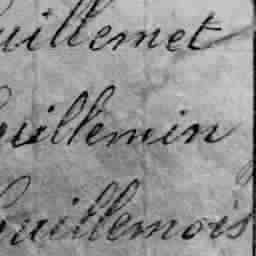 Guillemet
Guillemin
Guillemois